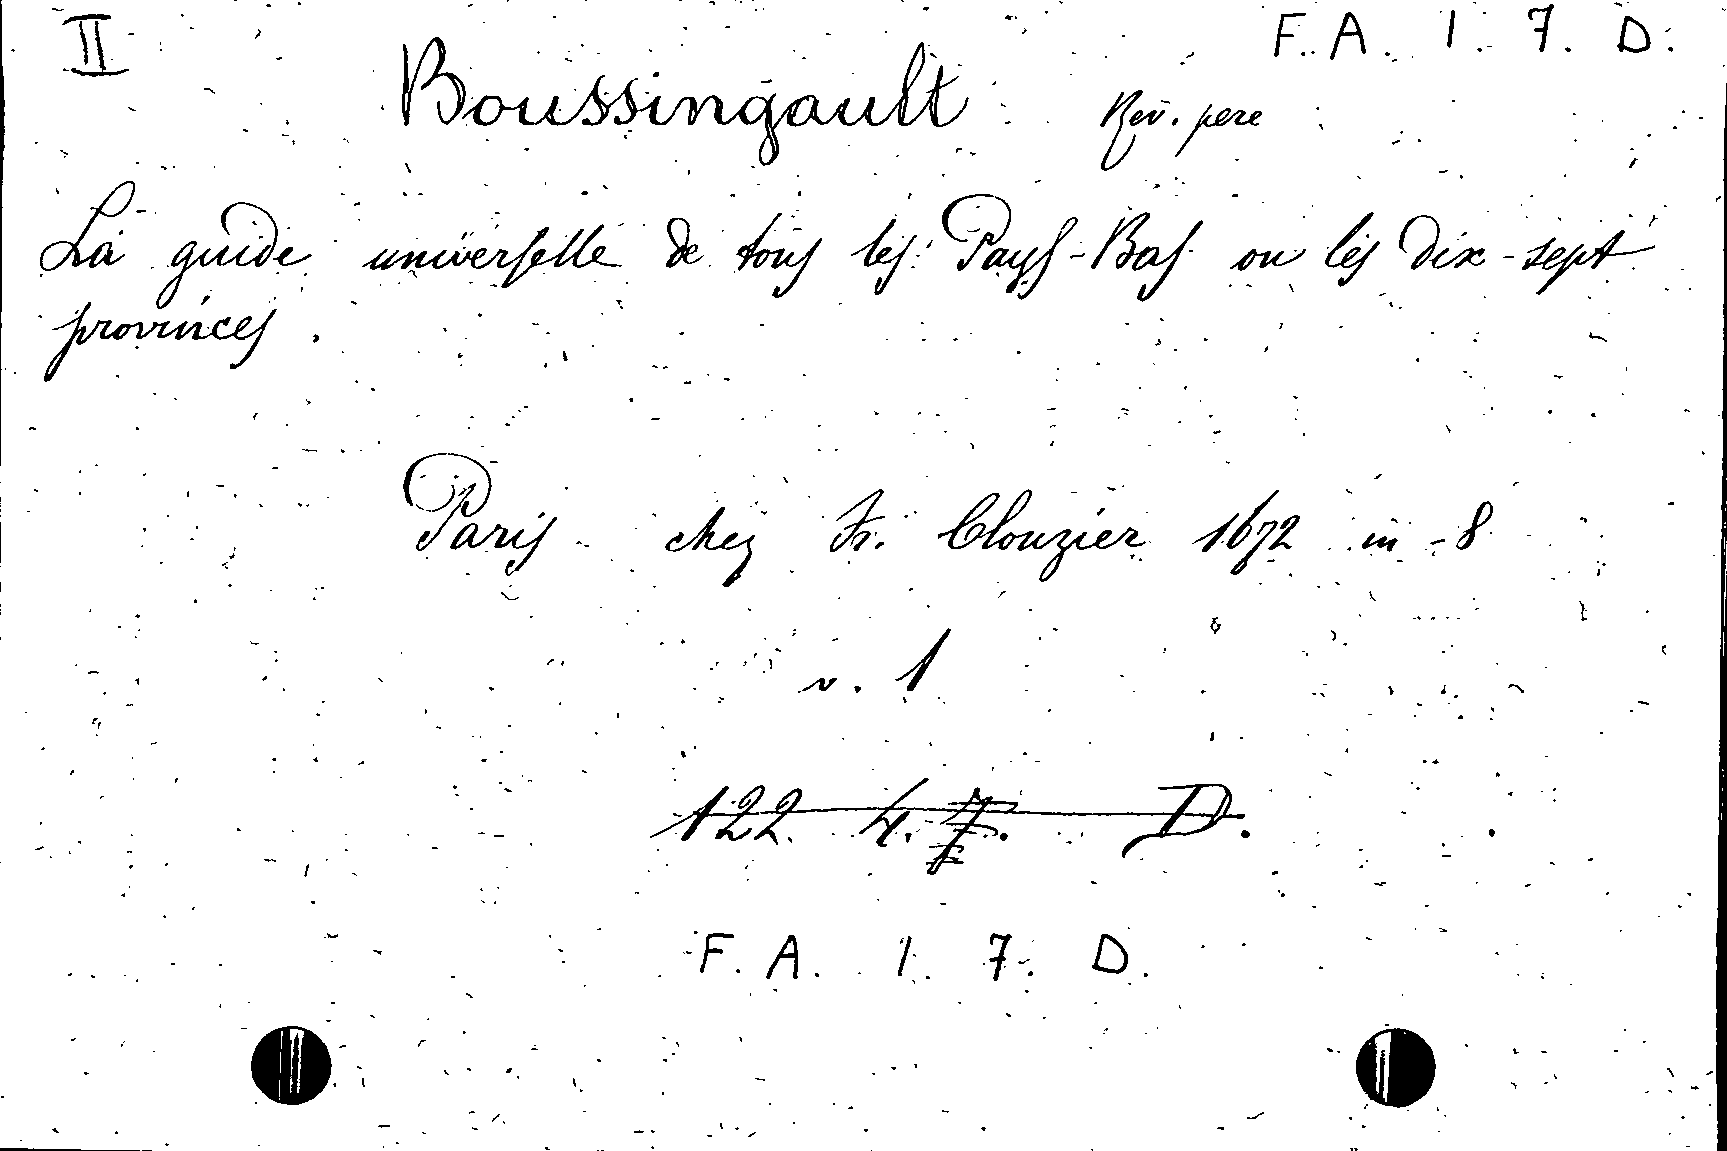 II
F. A. 1. 7. D.
Boussingault Rev. pere
La guide universelle de tous les Pays-Bas ou les dix-sept
provinces.
Paris chez Fr. Clouzier 1672 in-8
v. 1
122. 4. 7. D.
F. A. 1. 7. D.